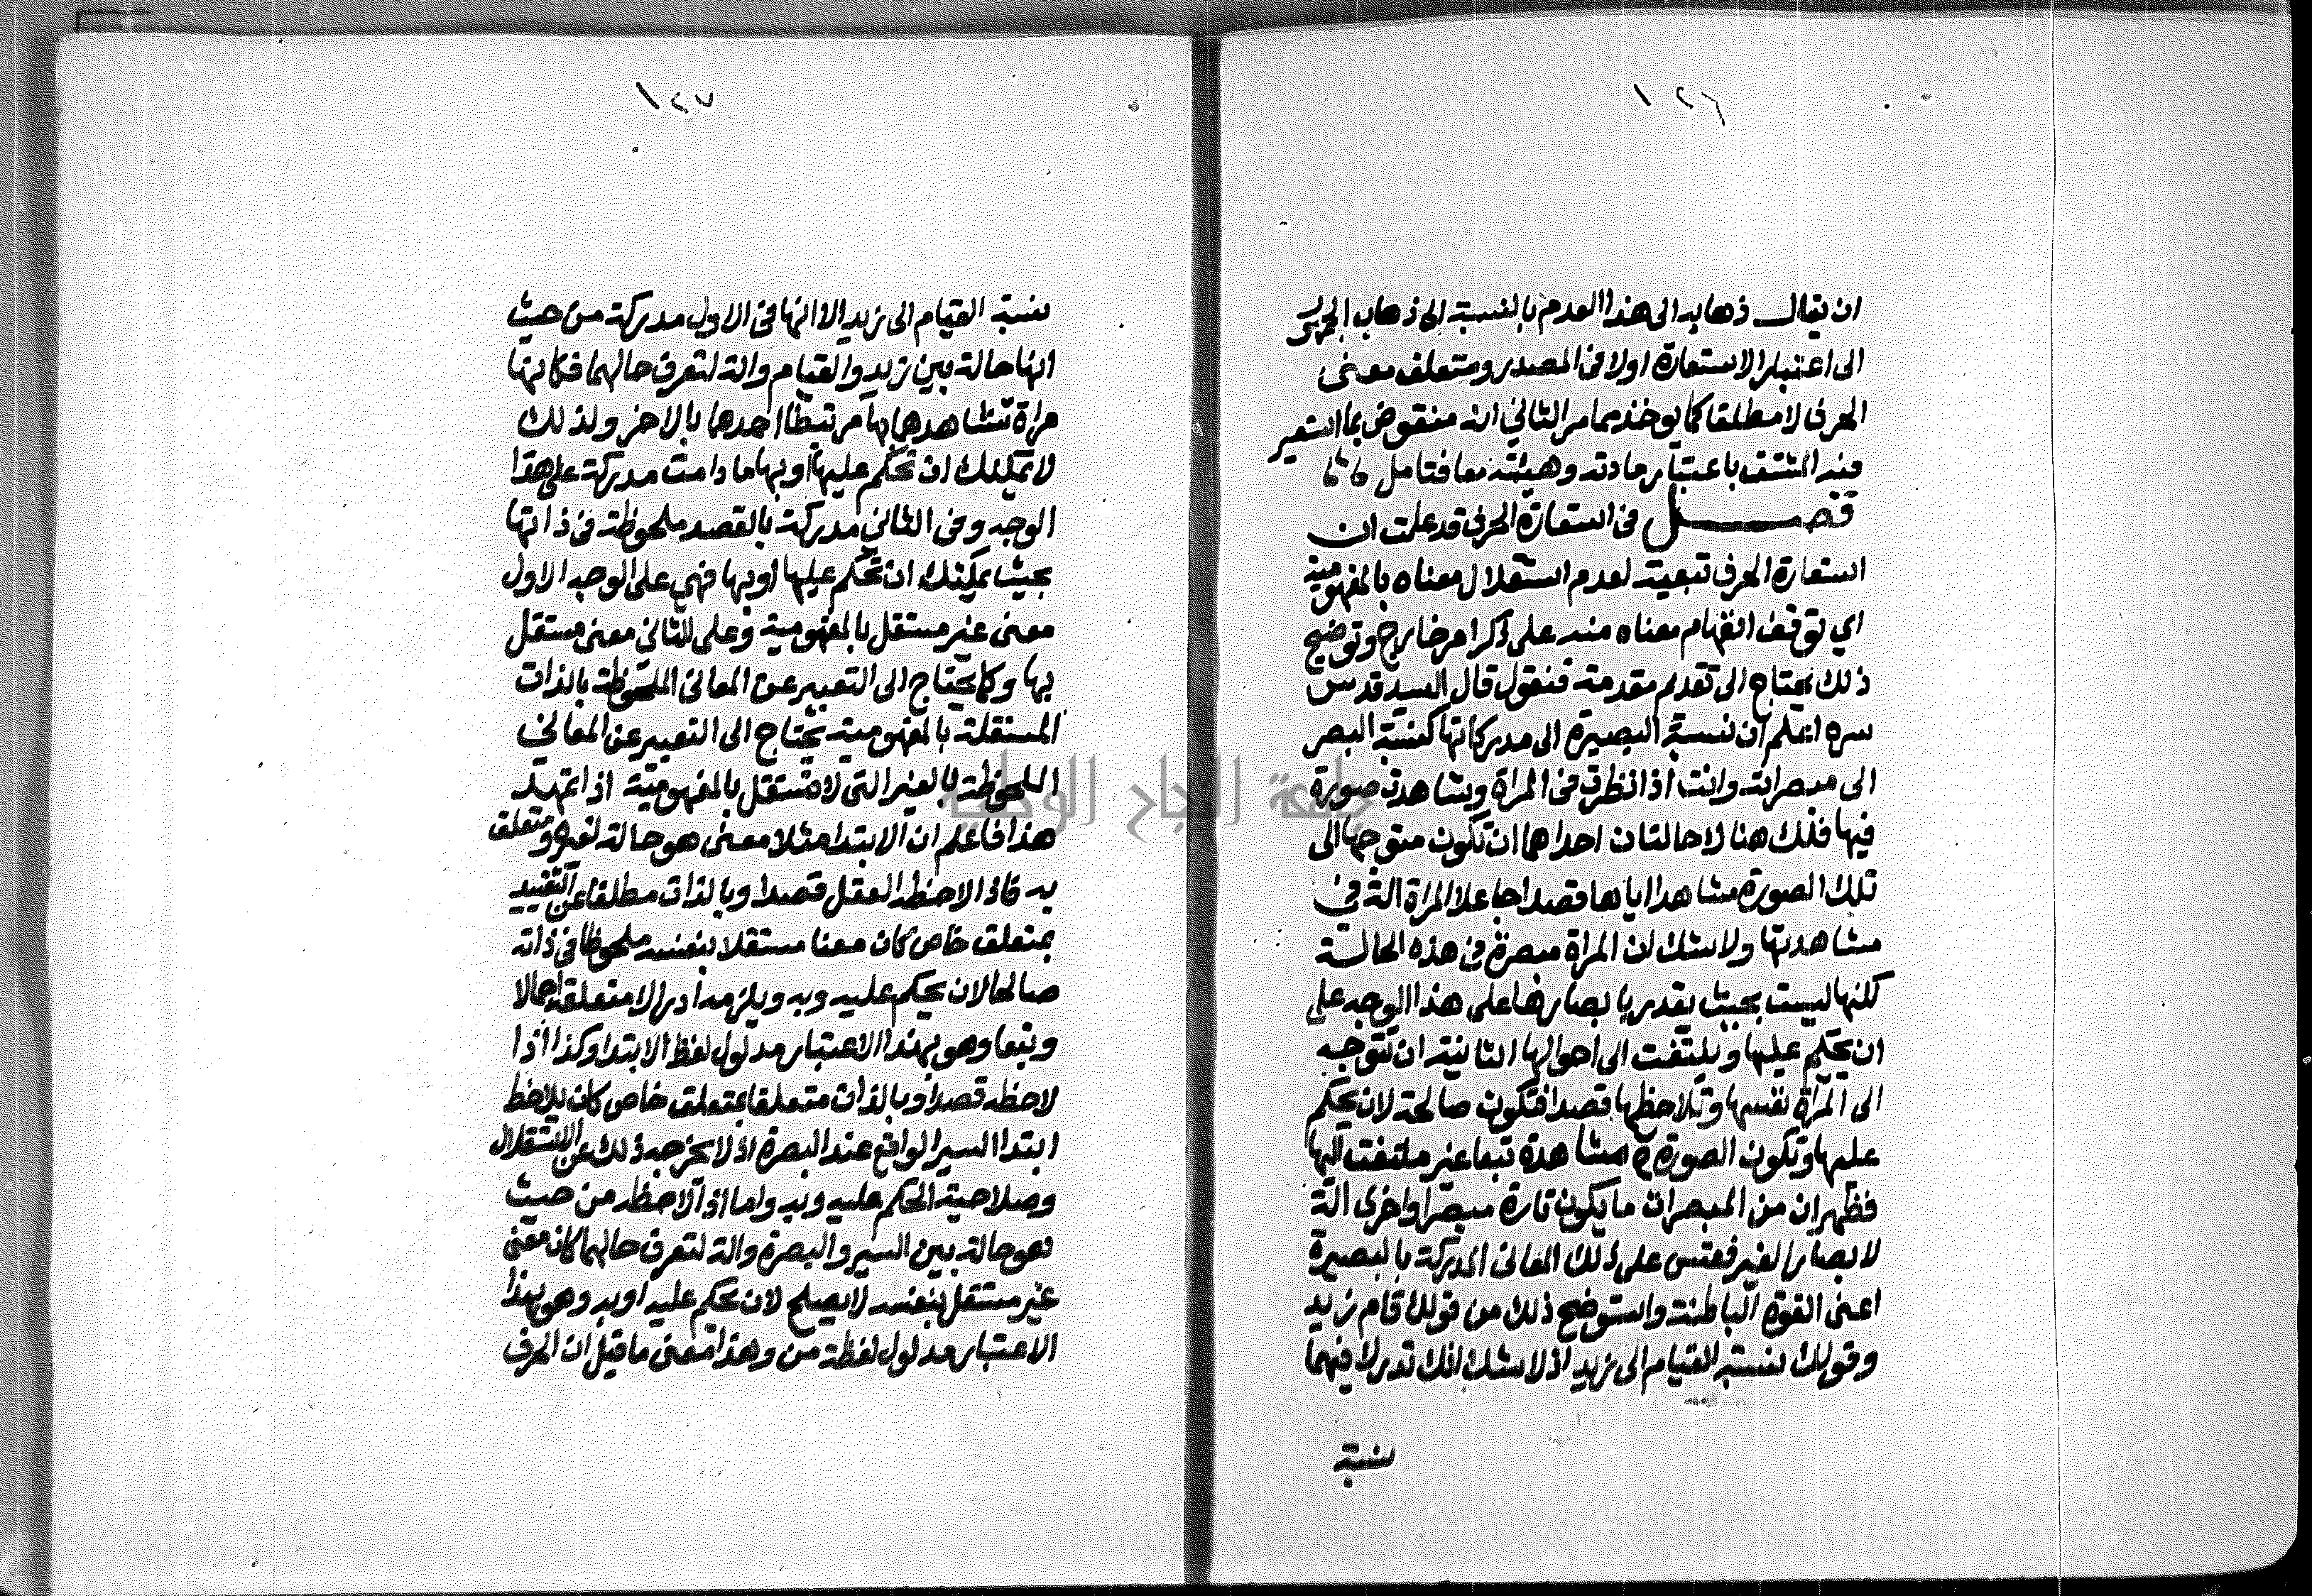 ١٢٦
ان يقال ذهابه الى هذا العدم بالنسبة الى ذهاب
الى اعتبار الاستعارة اولا في المصدر ومتعلق معنى
الحرف لا مطلقا كما يوخذ مما مر الثاني انه منقوض بما استعير
منه المشتق باعتبار مادته وهيئته معا فتامل
فصل في استعارة الحرف قد علمت ان
استعارة الحرف تبعية لعدم استقلال معناه بالمفهومية
اي توقف انفهام معناه منه على ذكر امر خارج وتوضيح
ذلك يحتاج الى تقديم مقدمة فنقول قال السيد قدس
سره اعلم ان نسبة البصيرة الى مدركاتها كنسبة البصر
الى مبصراته وانت اذا نظرت في المراة وشاهدت صورة
فيها فلك هنا لا حالتان احداهما ان تكون متوجها الى
تلك الصورة مشاهدا اياها قصدا جاعلا المراة الة في
مشاهدتها ولا شك ان المراة مبصرة في هذه الحالة
لكنها ليست بحيث يقدر بابصارها على هذا الوجه على
ان يحكم عليها ويلتفت الى احوالها الثانية ان تتوجه
الى المراة نفسها وتلاحظها قصدا فتكون صالحة لان يحكم
عليها وتكون الصورة مشاهدة تبعا غير ملتفت اليها
فظهر ان من المبصرات ما يكون تارة مبصرا واخرى الة
لابصار الغير فقس على ذلك المعاني المدركة بالبصيرة
اعني القوة الباطنة واستوضح ذلك من قولك قام زيد
وقولك نسبة القيام الى زيد اذ لا شك انك تدرك فيهما
نسبة
١٢٧
نسبة القيام الى زيد الا انها في الاول مدركة من حيث
انها حالة بين زيد والقيام والة لتعرف حالهما فكانها
مراة تشاهدهما بها مرتبطا احدهما بالاخر ولذلك
لا يمكنك ان تحكم عليها او بها ما دامت مدركة على هذا
الوجه وفي الثاني مدركة بالقصد ملحوظة في ذاتها
بحيث يمكنك ان تحكم عليها او بها فهي على الوجه الاول
معنى غير مستقل بالمفهومية وعلى الثاني معنى مستقل
بها وكما يحتاج الى التعبير عن المعاني الملحوظة بالذات
المستقلة بالمفهومية يحتاج الى التعبير عن المعاني
الملحوظة بالغير التي لا تستقل بالمفهومية اذا تمهيد
هذا فاعلم ان الابتدا مثلا معنى هو حالة لغيره ومتعلق
به فاذا لاحظه العقل قصدا وبالذات مطلقا عن التقييد
بمتعلق خاص كان معنا مستقلا بنفسه ملحوظا في ذاته
صالحا لان يحكم عليه وبه ويلزمه ادراك متعلقه اجمالا
وتبعا وهو بهذا الاعتبار مدلول لفظ الابتدا وكذا اذا
لاحظه قصدا وبالذات متعلقا بمتعلق خاص كان يلاحظ
ابتدا السير الواقع عند البصرة اذ لا يخرجه ذلك عن الاستقلال
وصلاحية الحكم عليه وبه واما اذا لاحظه من حيث
هو حالة بين السير والبصرة والة لتعرف حالهما كان معنى
غير مستقل بنفسه لا يصلح لان يحكم عليه او به وهو بهذا
الاعتبار مدلول لفظة من وهذا معنى ما قيل ان الحرف
جامعة النجاح الوطنية